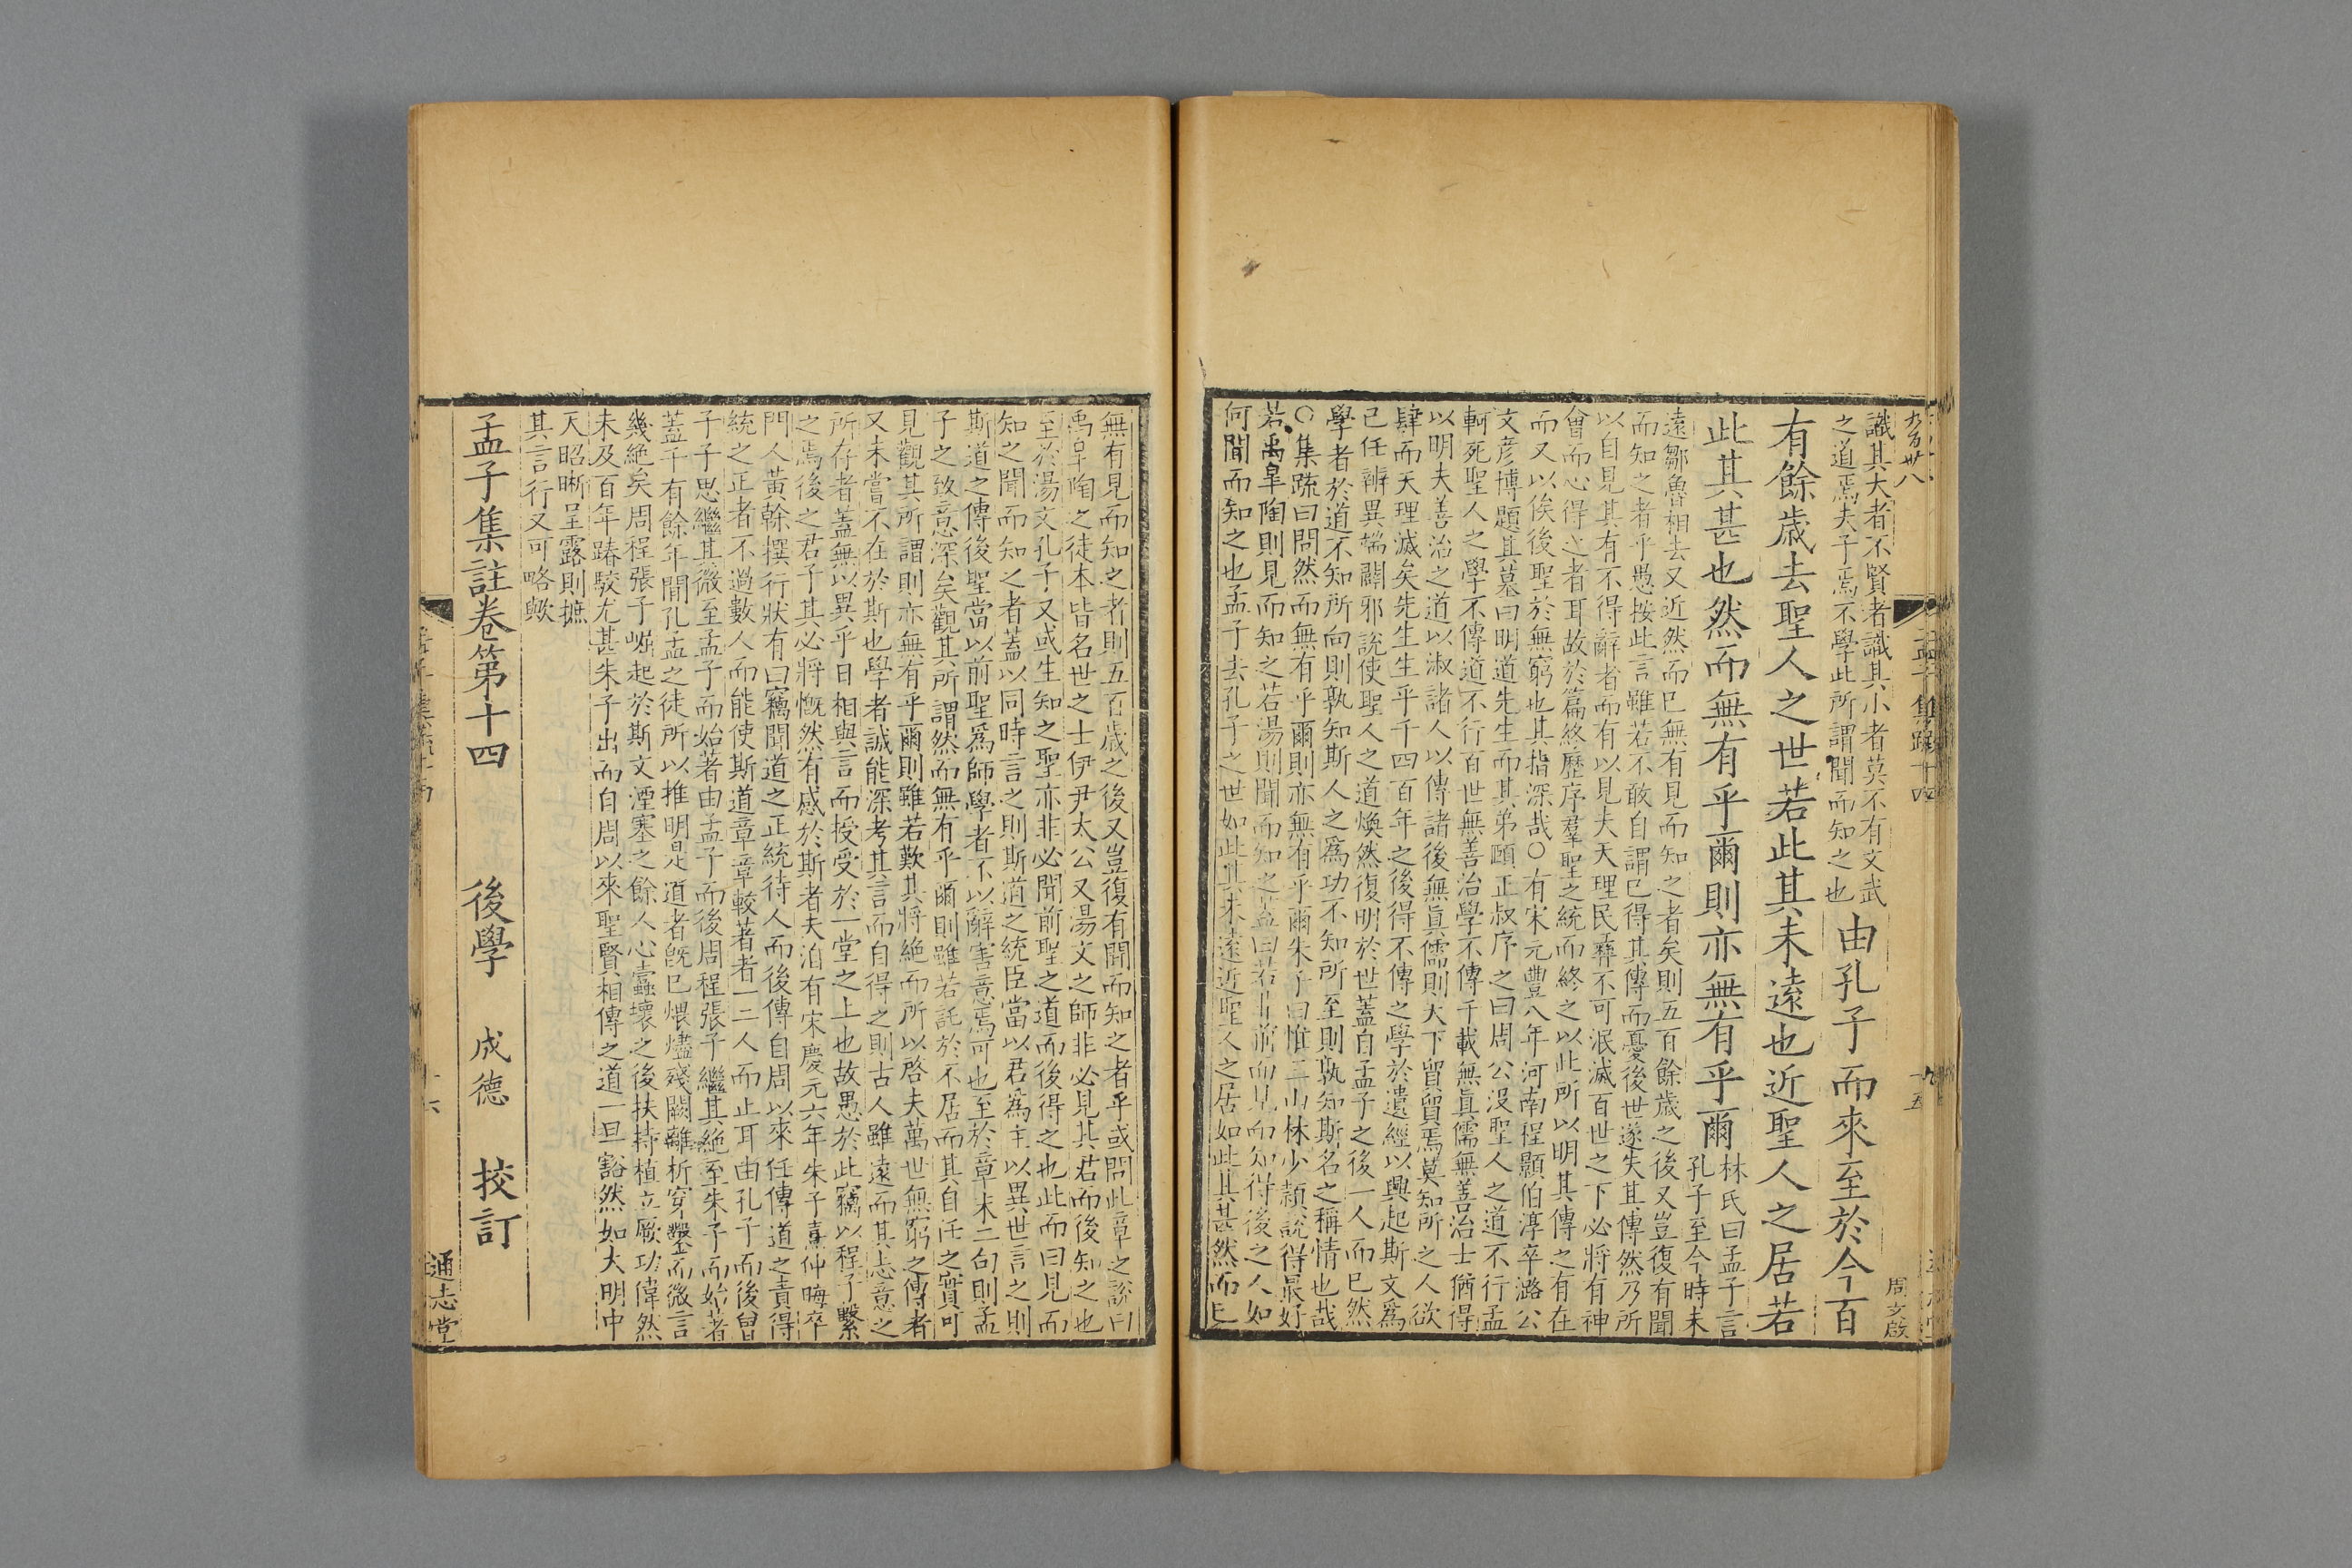 識其大者不賢者識其小者莫不有文武
之道焉夫子焉不學此所謂聞而知之也
由孔子而來至於今百
有餘歲去聖人之世若此其未遠也近聖人之居若
此其甚也然而無有乎爾則亦無有乎爾
林氏曰孟子言
孔子至今時未
遠鄒魯相去又近然而已無有見而知之者矣則五百餘歲之後又豈復有聞
而知之者乎愚按此言雖若不敢自謂已得其傳而憂後世遂失其傳然乃所
以自見其有不得辭者而有以見夫天理民彝不可泯滅百世之下必將有神
會而心得之者耳故於篇終歷序羣聖之統而終之以此所以明其傳之有在
而又以俟後聖於無窮也其指深哉○有宋元豐八年河南程顥伯淳卒潞公
文彦博題其墓曰明道先生而其弟頤正叔序之曰周公没聖人之道不行孟
軻死聖人之學不傳道不行百世無善治學不傳千載無眞儒無善治士猶得
以明夫善治之道以淑諸人以傳諸後無眞儒則天下貿貿焉莫知所之人欲
肆而天理滅矣先生生乎千四百年之後得不傳之學於遺經以興起斯文爲
己任辨異端闢邪說使聖人之道煥然復明於世蓋自孟子之後一人而已然
學者於道不知所向則孰知斯人之爲功不知所至則孰知斯名之稱情也哉
○集疏曰問然而無有乎爾則亦無有乎爾朱子曰惟三山林少穎說得最好
若禹皐陶則見而知之若湯則聞而知之蓋曰若非前面見而知得後之人如
何聞而知之也孟子去孔子之世如此其未遠近聖人之居如此其甚然而已
孟子集疏十四
十五
周文啟
無有見而知之者則五百歲之後又豈復有聞而知之者乎或問此章之說曰
禹皐陶之徒本皆名世之士伊尹太公又湯文之師非必見其君而後知之也
至於湯文孔子又或生知之聖亦非必聞前聖之道而後得之也此而曰見而
知之聞而知之者蓋以同時言之則斯道之統臣當以君爲主以異世言之則
斯道之傳後聖當以前聖爲師學者不以辭害意焉可也至於章末二句則孟
子之致意深矣觀其所謂然而無有乎爾則雖若託於不居而其自任之實可
見觀其所謂則亦無有乎爾則雖若歎其將絶而所以啓夫萬世無窮之傳者
又未嘗不在於斯也學者誠能深考其言而自得之則古人雖遠而其志意之
所存者蓋無以異乎日相與言而授受於一堂之上也故愚於此竊以程子繫
之焉後之君子其必將慨然有感於斯者夫洎有宋慶元六年朱子熹仲晦卒
門人黃榦撰行狀有曰竊聞道之正統待人而後傳自周以來任傳道之責得
統之正者不過數人而能使斯道章章較著者一二人而止耳由孔子而後曾
子子思繼其微至孟子而始著由孟子而後周程張子繼其絶至朱子而始著
蓋千有餘年間孔孟之徒所以推明是道者旣已煨燼殘闕離析穿鑿而微言
幾絶矣周程張子崛起於斯文湮塞之餘人心蠹壞之後扶持植立厥功偉然
未及百年踳駮尤甚朱子出而自周以來聖賢相傳之道一旦豁然如大明中
天昭晰呈露則摭
其言行又可略歟
孟子集註卷第十四　後學　成德　挍訂
十六
通志堂